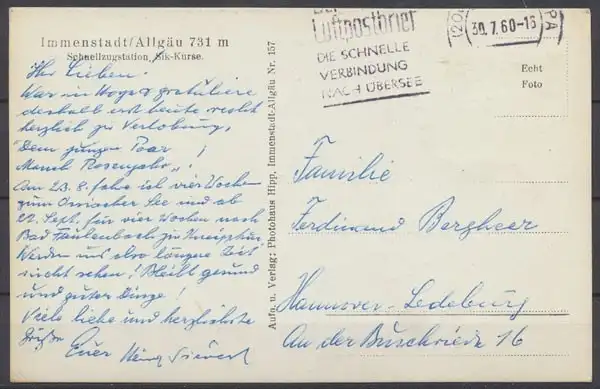 Immenstadt/Allgäu 731 m
Schnellzugstation, Sik-Kurse.
Ihr Lieben.
War in gratuliere
deshalb erst heute recht
herzlich zu Verlobung.
Dem jungen Paar
Manch Rosenjahr!
Am 23.8. fahre ich vier Wochen
zum Ossiacher See und ab
22. Sept. für vier Wochen nach
Bad Faulenbach zu Kneippkur.
Werden uns also längere Zeit
nicht sehen! Bleibt gesund
und guter Dinge!
Viele liebe und herzlichste
Grüße
Euer Heinz Sievert
Aufn. u. Verlag: Photohaus Hipp, Immenstadt-Allgäu Nr. 157
Der
Luftpostbrief
DIE SCHNELLE
VERBINDUNG
NACH ÜBERSEE
30.7.60-16
Echt
Foto
Familie
Ferdinand Bergheer
Hannover-Ledeburg
An der Buschriede 16